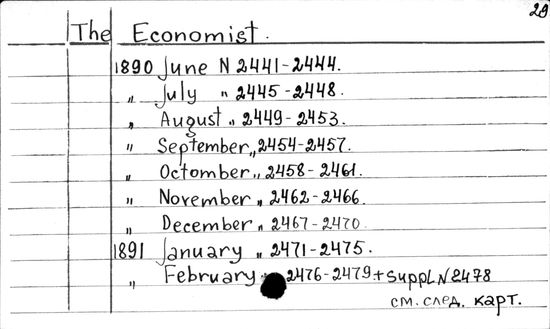 29
The Economist.
1890 June N 2441-2444.
" July " 2445-2448.
" August " 2449-2453.
" September " 2454-2457.
" Octomber " 2458-2461.
" November " 2462-2466.
" December " 2467-2470.
1891 January " 2471-2475.
" February 2476-2479 + Suppl N 2478
см. след. карт.